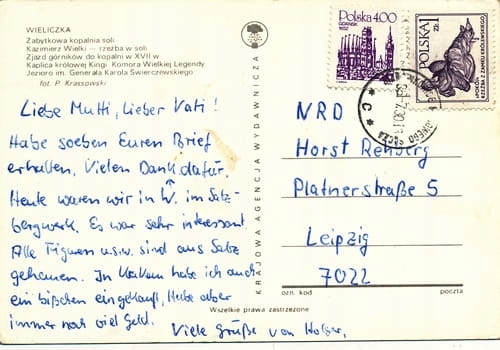 WIELICZKA
Zabytkowa kopalnia soli
Kazimierz Wielki — rzeźba w soli
Zjazd górników do kopalni w XVII w.
Kaplica królowej Kingi. Komora Wielkiej Legendy
Jezioro im. Generała Karola Świerczewskiego
fot. P. Krassowski
Liebe Mutti, Lieber Vati!
Habe soeben Euren Brief
erhalten. Vielen Dank dafür.
Heute waren wir in W. im Salz-
bergwerk. Es war sehr interessant.
Alle Figuren u.s.w. sind aus Salz
gehauen. In Krakau habe ich auch
ein bißchen eingekauft, Habe aber
immer noch viel Geld.
Viele Grüße von Holger.
KRAJOWA AGENCJA WYDAWNICZA
Polska 4.00
GDAŃSK
POLSKA 1 ZŁ
C
NRD
Horst Rehberg
Platnerstraße 5
Leipzig
7022
ozn. kod
poczta
Wszelkie prawa zastrzeżone